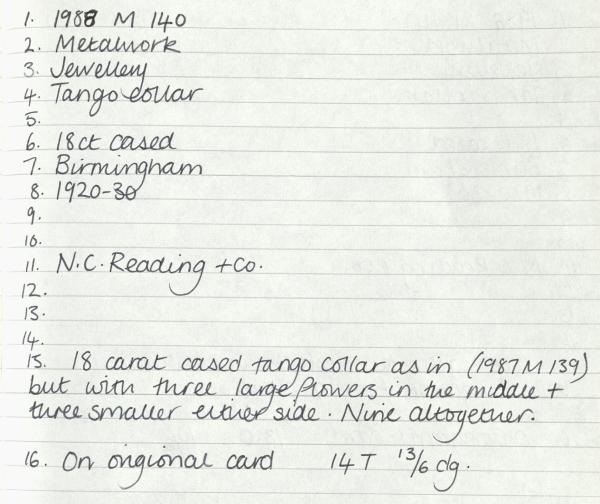 1. 1988 M 140
2. Metalwork
3. Jewellery
4. Tango collar
5.
6. 18ct cased
7. Birmingham
8. 1920-30
9.
10.
11. N.C. Reading + Co.
12.
13.
14.
15. 18 carat cased tango collar as in (1987 M 139)
but with three large flowers in the middle +
three smaller either side. Nine altogether.
16. On origional card 14 T 13/6 dg.